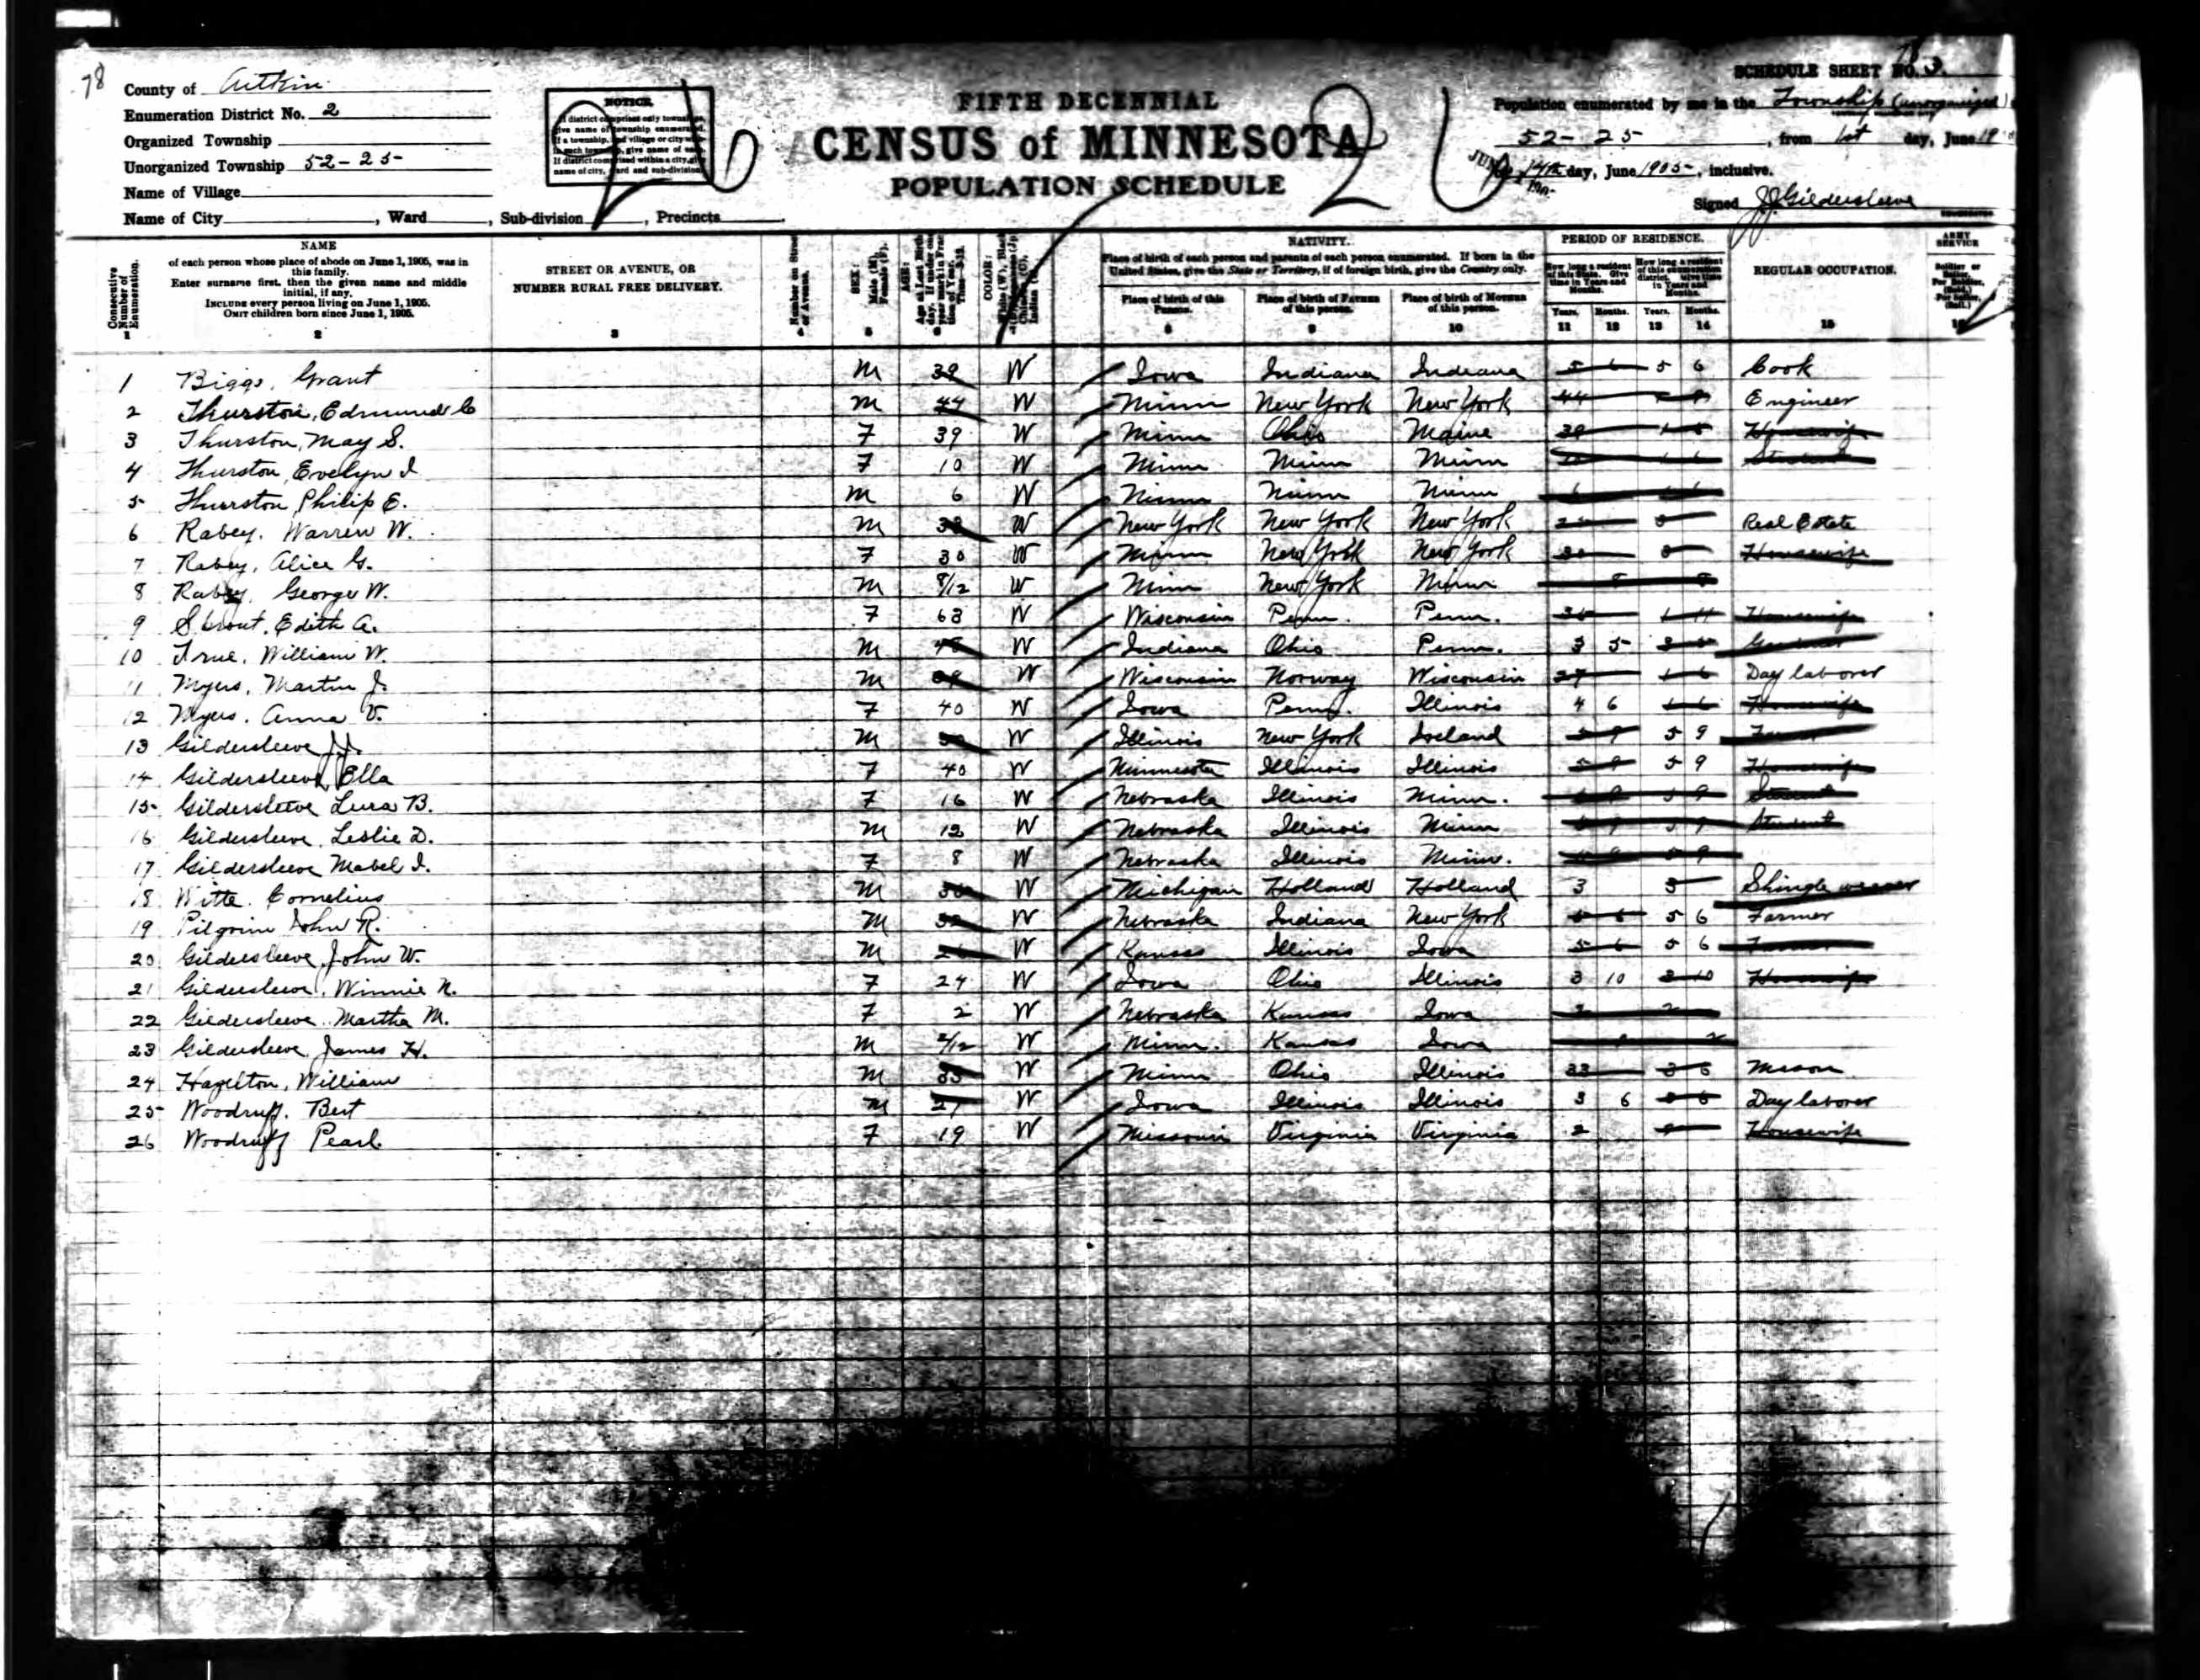 78
SCHEDULE SHEET NO. 3.
County of Aitkin
Enumeration District No. 2
Organized Township
Unorganized Township 52-25
Name of Village
Name of City , Ward , Sub-division , Precincts
NOTICE.
26
FIFTH DECENNIAL
CENSUS of MINNESOTA
POPULATION SCHEDULE
26
Population enumerated by me in the Township (unorganized)
52-25 , from 1st day, June 19
14th day, June 1905, inclusive.
Signed J.J. Gildersleeve
Consecutive Number of Enumeration.
NAME
of each person whose place of abode on June 1, 1905, was in this family.
Enter surname first, then the given name and middle initial, if any.
INCLUDE every person living on June 1, 1905.
OMIT children born since June 1, 1905.
STREET OR AVENUE, OR NUMBER RURAL FREE DELIVERY.
Number on Street or Avenue.
SEX: Male (M), Female (F).
NATIVITY.
Place of birth of each person and parents of each person enumerated. If born in the United States, give the State or Territory, if of foreign birth, give the Country only.
Place of birth of this Person.
Place of birth of FATHER of this person.
Place of birth of MOTHER of this person.
PERIOD OF RESIDENCE.
Years. Months. Years. Months.
REGULAR OCCUPATION.
ARMY SERVICE
1 2 3 10 11 12 13 14 15
1 Biggs, Grant M 39 W Iowa Indiana Indiana 5 6 5 6 Cook
2 Thurston, Edmund C M 44 W Minn New York New York 44 Engineer
3 Thurston, May S. F 39 W Minn Ohio Maine 39 Housewife
4 Thurston, Evelyn I F 10 W Minn Minn Minn Student
5 Thurston, Philip E. M 6 W Minn Minn Minn
6 Rabey, Warren W. M W New York New York New York Real Estate
7 Rabey, Alice G. F 30 W Minn New York New York Housewife
8 Rabey, George W. M 8/12 W Minn New York Minn
9 Edith A. F 63 W Wisconsin Penn. Penn. Housewife
10 True, William W. M W Indiana Ohio Penn. 3 5
11 Myers, Martin J. M W Wisconsin Norway Wisconsin 27 1 6 Day laborer
12 Myers, Anna V. F 40 W Iowa Penn. Illinois 4 6 1 6 Housewife
13 Gildersleeve J.J. M W Illinois New York Ireland 5 9 5 9 Farmer
14 Gildersleeve, Ella F 40 W Minnesota Illinois Illinois 5 9 5 9 Housewife
15 Gildersleeve Lura B. F 16 W Nebraska Illinois Minn. 5 9 Student
16 Gildersleeve, Leslie D. M 12 W Nebraska Illinois Minn 5 9 Student
17 Gildersleeve Mabel I. F 8 W Nebraska Illinois Minn. 5 9
18 Witte, Cornelius M W Michigan Holland Holland 3 3 Shingle weaver
19 Pilgrim John R. M W Nebraska Indiana New York 5 6 5 6 Farmer
20 Gildersleeve, John W. M W Kansas Illinois Iowa 5 6 5 6 Farmer
21 Gildersleeve, Winnie N. F 24 W Iowa Ohio Illinois 3 10 3 10 Housewife
22 Gildersleeve, Martha M. F 2 W Nebraska Kansas Iowa 2 2
23 Gildersleeve, James H. M 2/12 W Minn. Kansas Iowa 2
24 Hazelton, William M 33 W Minn Ohio Illinois 33 3 6 Mason
25 Woodruff, Bert M 27 W Iowa Illinois Illinois 3 6 3 6 Day laborer
26 Woodruff Pearl F 19 W Missouri Virginia Virginia 2 2 Housewife